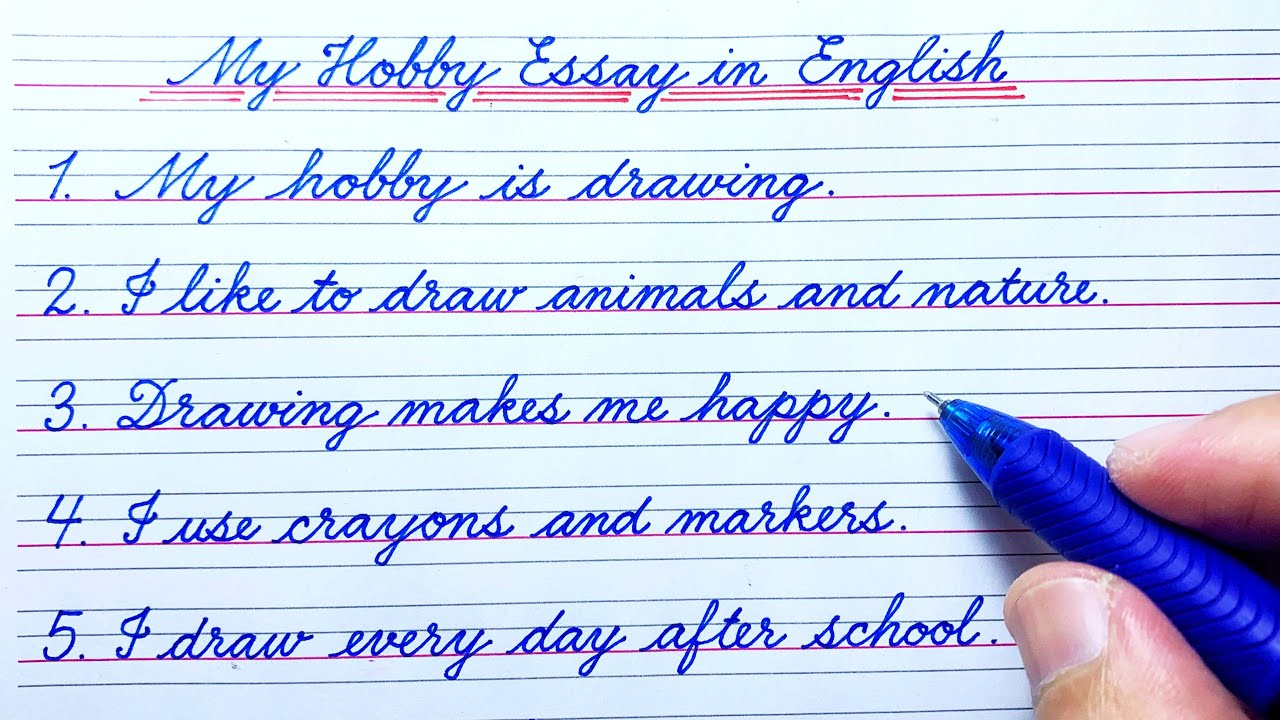 My Hobby Essay in English
1. My hobby is drawing.
2. I like to draw animals and nature.
3. Drawing makes me happy.
4. I use crayons and markers.
5. I draw every day after school.